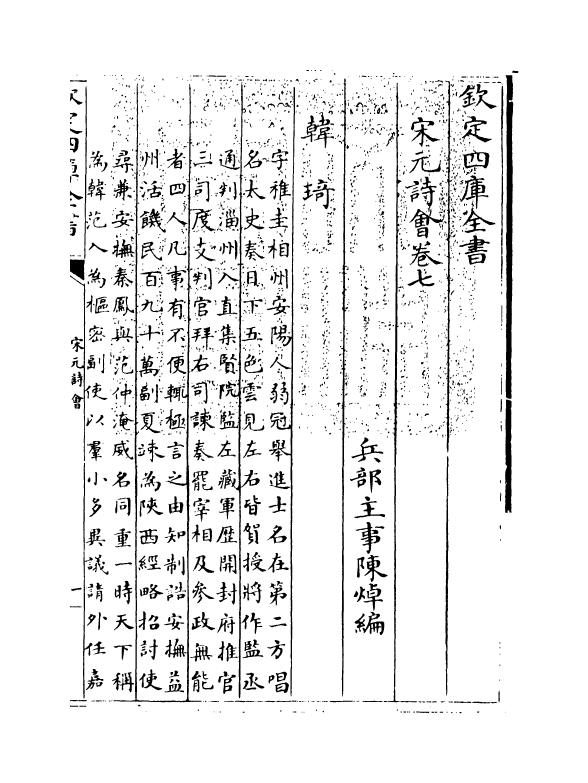 欽定四庫全書
宋元詩會卷七
兵部主事陳焯編
韓琦
字稚圭相州安陽人弱冠舉進士名在第二方唱
名太史奏日下五色雲見左右皆賀授將作監丞
通判淄州入直集賢院監左藏軍歴開封府推官
三司度支判官拜右司諫奏罷宰相及參政無能
者四人凡事有不便輒極言之由知制誥安撫益
州活饑民百九十萬副夏竦為陜西經略招討使
尋兼安撫秦鳳與范仲淹威名同重一時天下稱
為韓范入為樞密副使以羣小多異議請外任嘉
欽定四庫全書
宋元詩會
一